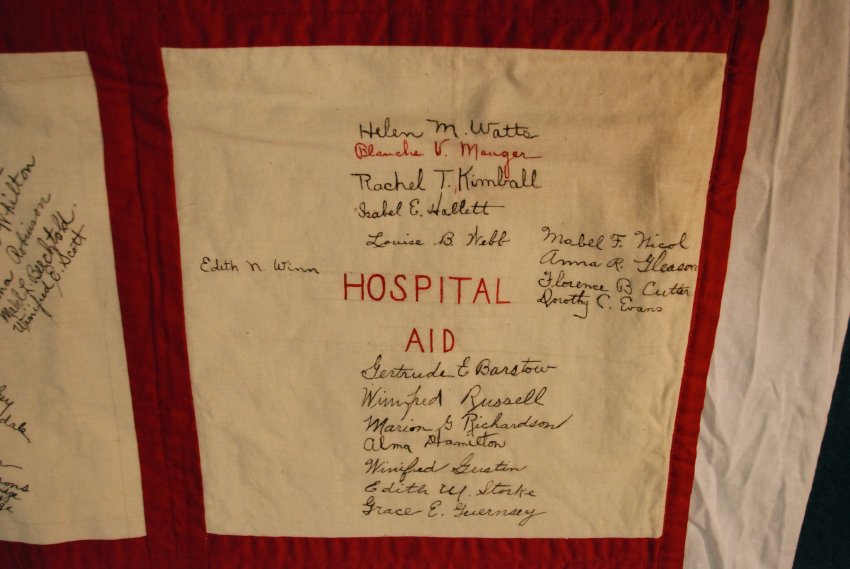 Helen M. Watts
Blanche V. Mauger
Rachel T. Kimball
Isabel E. Hallett
Louise B. Webb
Edith N. Winn
Mabel F. Nicol
Anna R. Gleason
Florence B Cutter
Dorothy C. Evans
HOSPITAL
AID
Gertrude E Barstow
Winifred Russell
Marion G Richardson
Alma Hamilton
Winifred Gustin
Edith M. Storke
Grace E. Guernsey
Mabel Bechtold
Winifred E. Scott